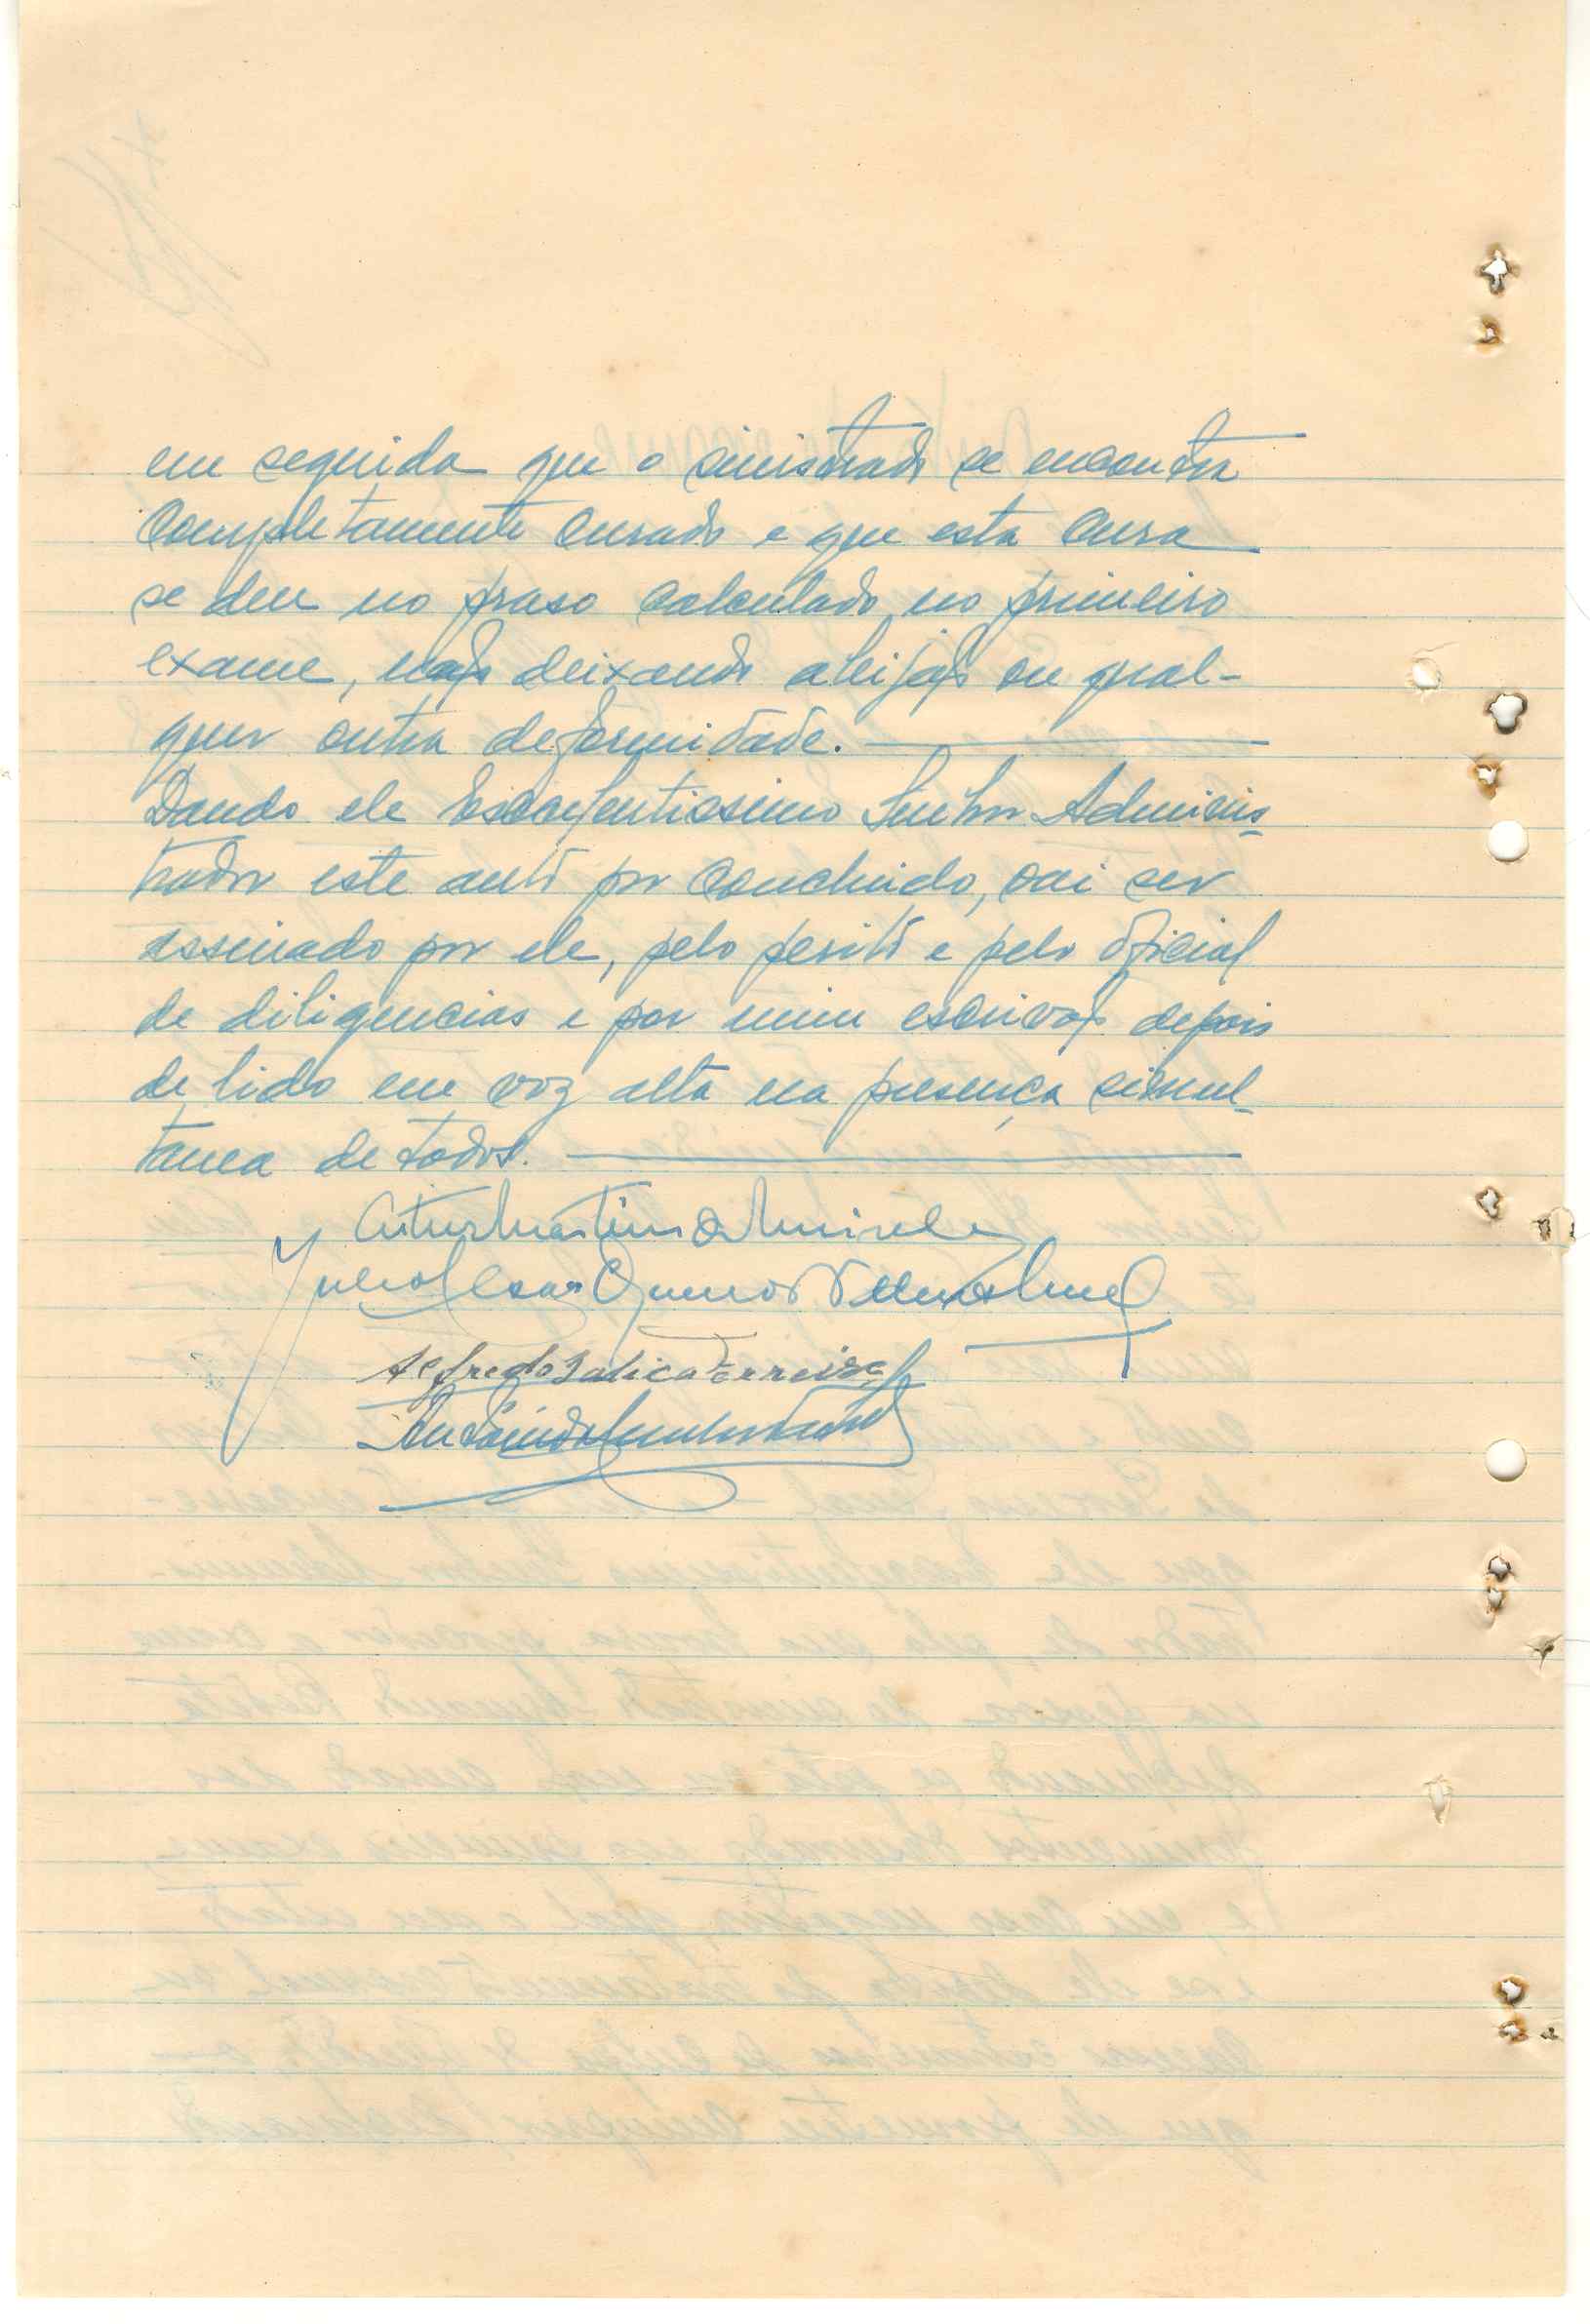 em seguida que o sinistrado se encontra
completamente curado e que esta cura
se deu no praso calculado no primeiro
exame, não deixando aleijão ou qual-
quer outra deformidade.
Dando ele Excelentissimo Senhor Adminis-
trador este auto por concluido, vai ser
assinado por ele, pelo perito e pelo oficial
de diligencias e por mim escrivão depois
de lido em voz alta na presença simul-
tanea de todos.
Artur Martins de
Cesar
Alfredo Ferreira
Antonio